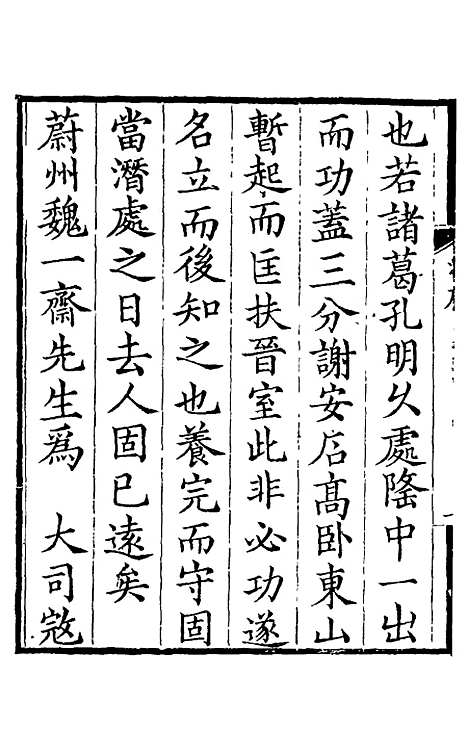 也若諸葛孔明乆處隆中一出
而功蓋三分謝安石高卧東山
暫起而匡扶晉室此非必功遂
名立而後知之也養完而守固
當潛處之日去人固已遠矣
蔚州魏一齋先生爲　大司宼